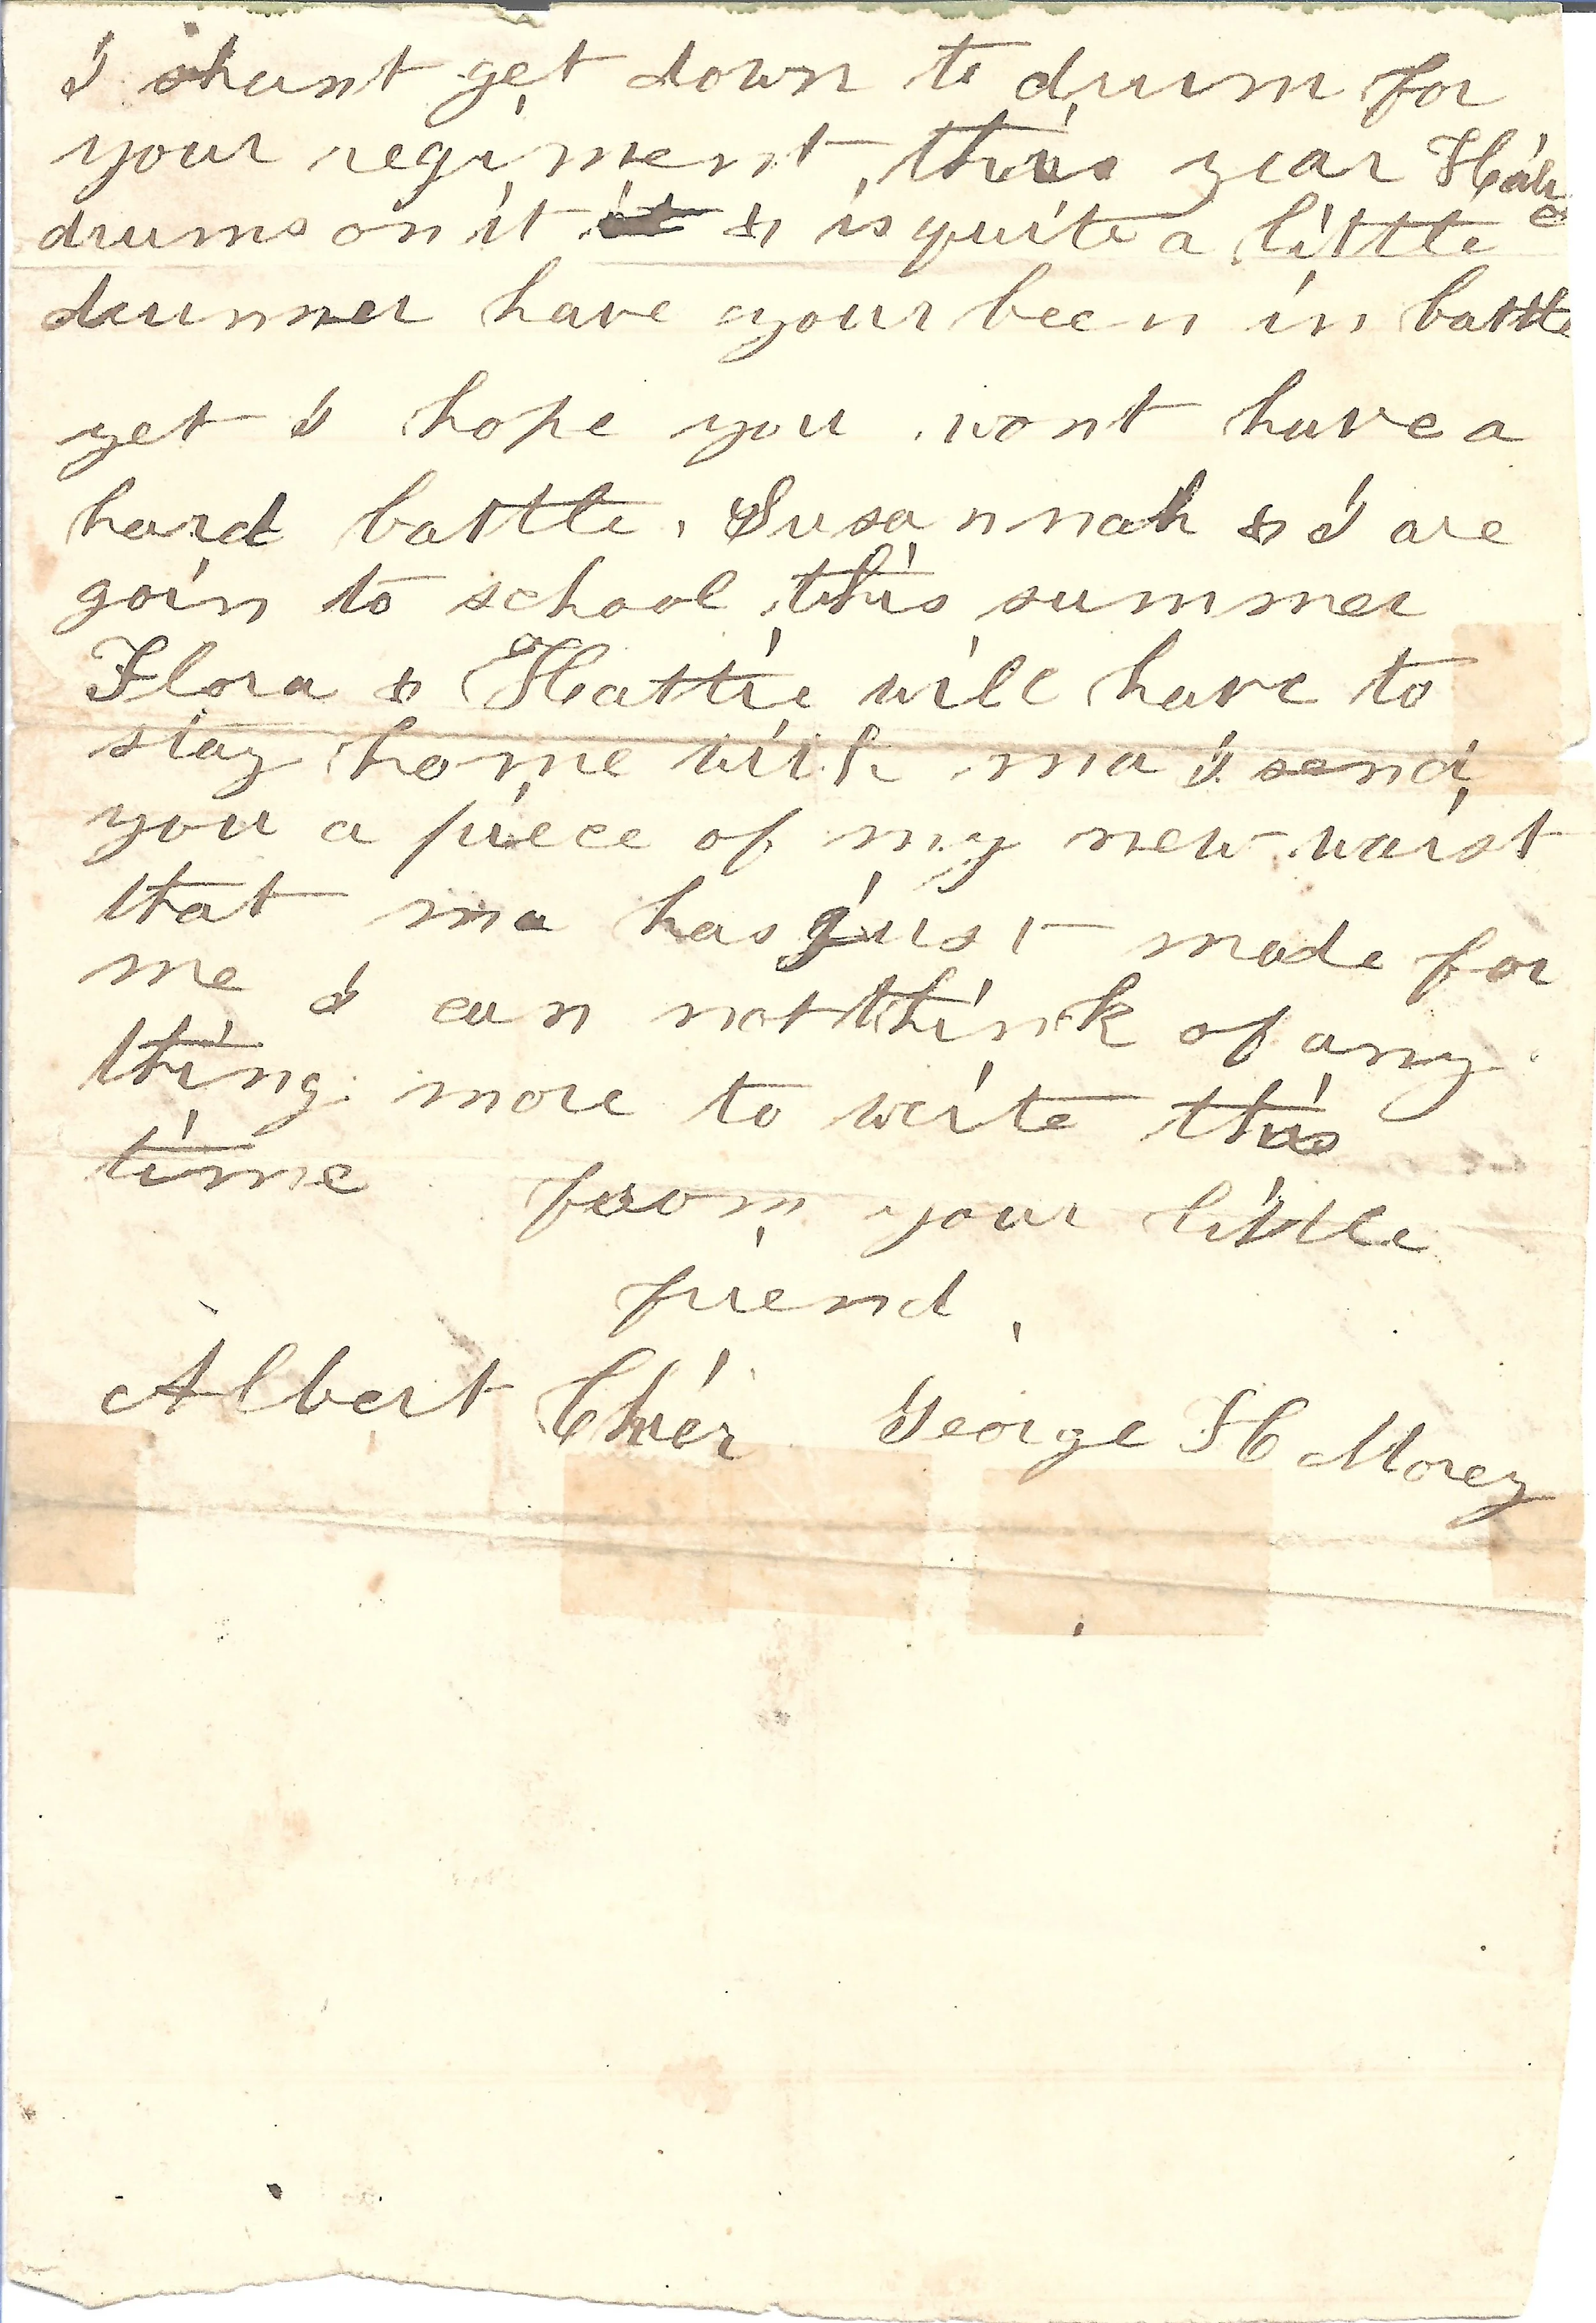 I shant get down to drum for
your regiment this year
drums on it & is quite a little
drummer have your been in battle
yet I hope you wont have a
hard battle. Susannah & I are
goin to school this summer
Flora & Hattie will have to
stay home with ma I send
you a piece of my new waist
that ma has just made for
me I can not think of any
thing more to write this
time from your little
friend
Albert George H Morey